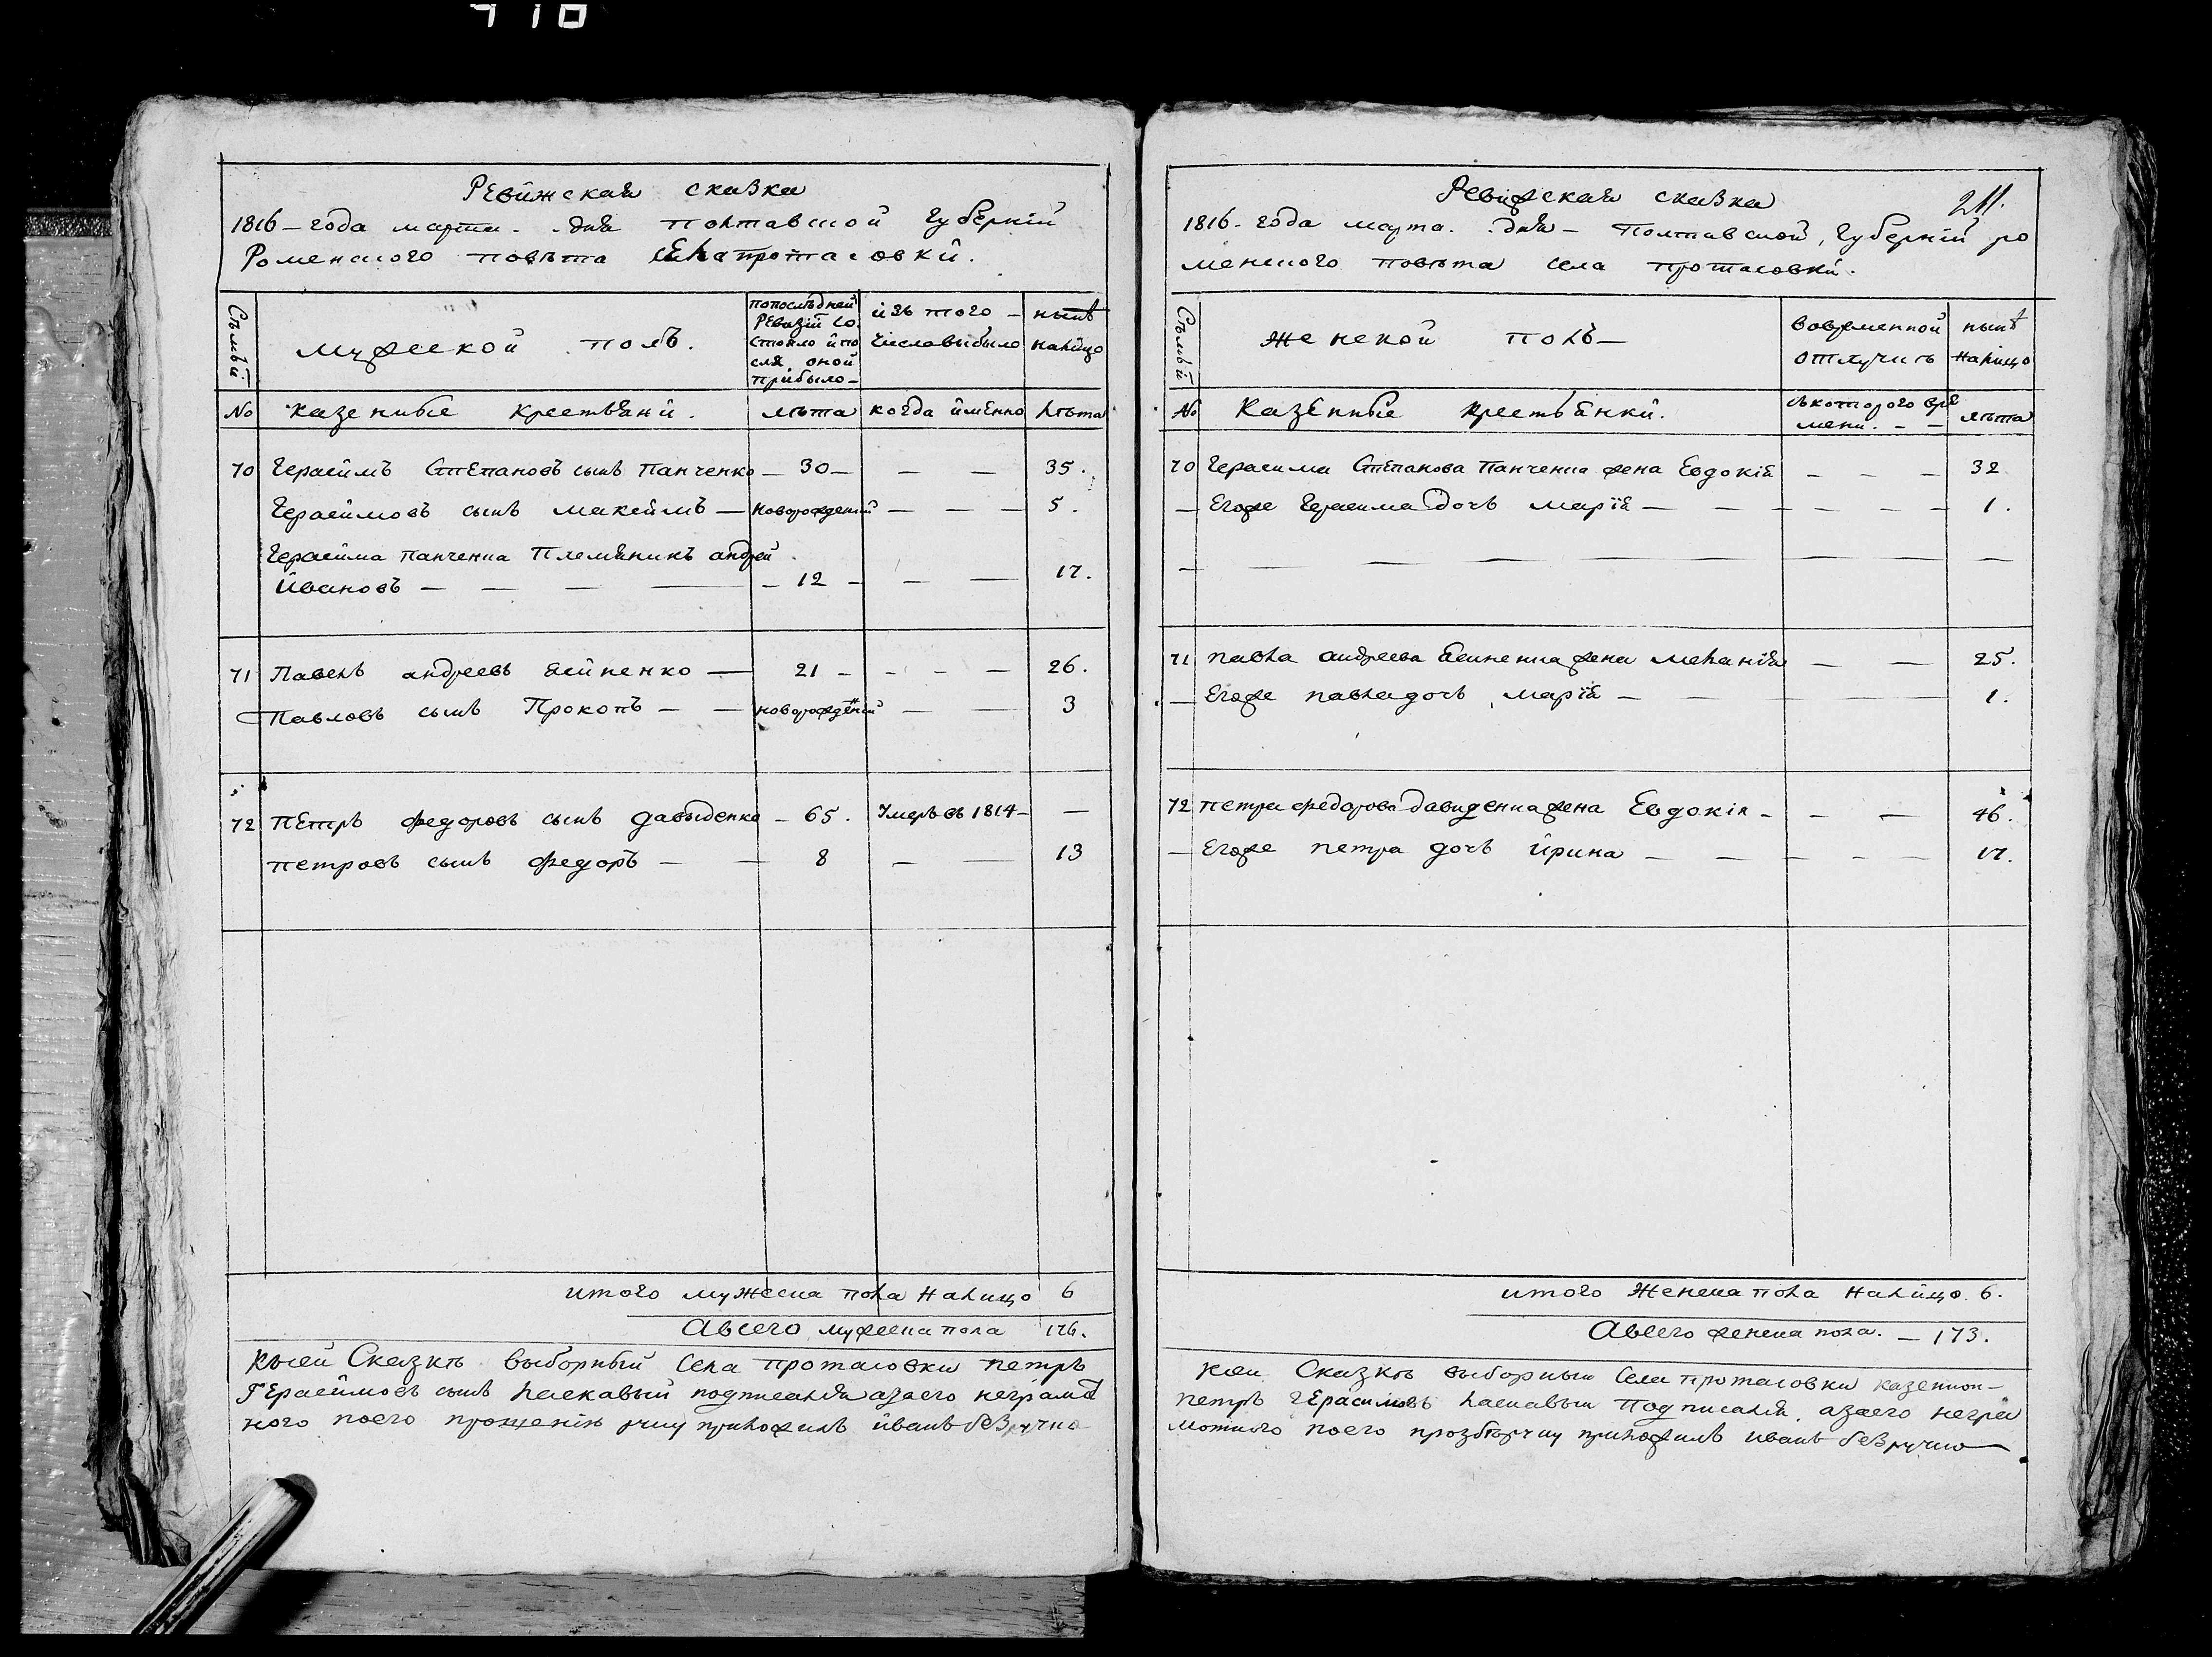 Ревижская сказка
1816 – года марта . дня полтавской Губернии
Роменского повѣта села протасовки.
Сѣмьи
мужеской полъ.
попослѣдней
Ревизіи со
стояло и по
сля оной
прибыло –
изъ того –
числа выбыло
нынѣ
налицо
№ казеныые крестьяни. лѣта когда имянно лѣта
70 Герасимъ Степановъ сынъ Панченко – 30 – — — 35.
Герасимовъ сынъ максимъ — новорожденый — — — 5.
Герасима панченка Племяникъ андрей
Ивановъ — — — — – 12 – — — 17.
71 Павелъ андреевъ ясипенко — 21 – – – — 26.
Павловъ сынъ Прокопъ – — новорождёный — — 3
72 Петръ федоровъ сынъ давыденко – 65. Умеръ въ 1814 – —
петровъ сынъ федоръ – — 8 — — 13
итого мужеска пола налицо 6
Авсего мужеска пола 176.
Ксей Сказкѣ выборный села протасовки петръ
Герасимовъ сынъ ласкавый подписался азаего неграмот
ного поего прошенію руку приложилъ иванъ
Ревижская сказка
211.
1816. года марта. .дня – Полтавской, Губерніи ро
менского повѣта села протасовки.
Сѣмьи
женской полъ –
вовременной
отлучкѣ
нынѣ
налицо
№ Казенные крестьянки. съ которого вре
мени. – – лѣта
70 Герасима Степанова Панченка жена Евдокія – – – 32
— Егоже Герасима дочь марія — — — — — — 1.
— — — — — — — — — —
71 павла андреева ясипенка жена меланія — — 25.
— Егоже павла дочь марія – — — — — 1.
72 петра федорова давиденка жена Евдокія – – — 46.
— Егоже петра дочь ирина — — — — — 17.
итого Женска пола налицо. 6.
Авсего женска пола. – 173.
Ксей Сказкѣ выборный села протасовки казенной –
петръ Герасимовъ ласкавый Подписался. азаего негра
мотного поего прозбѣ руку приложилъ иванъ